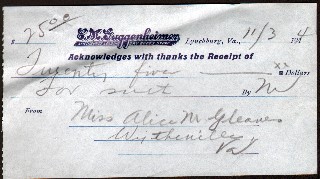 $ 25.00 C. M. Guggenheimer Lynchburg, Va., 11/3 1914
Acknowledges with thanks the Receipt of
Twenty five xx Dollars
for suit By M
From Miss Alice M. Gleaves
Wytheville,
Va